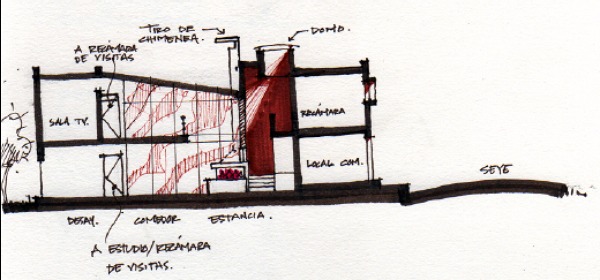 TIRO DE
CHIMENEA.
DOMO.
A RECÁMARA
DE VISITAS
SALA TV.
RECÁMARA
LOCAL COM.
SEYE
DESAY.
COMEDOR
ESTANCIA.
A ESTUDIO/RECÁMARA
DE VISITAS.